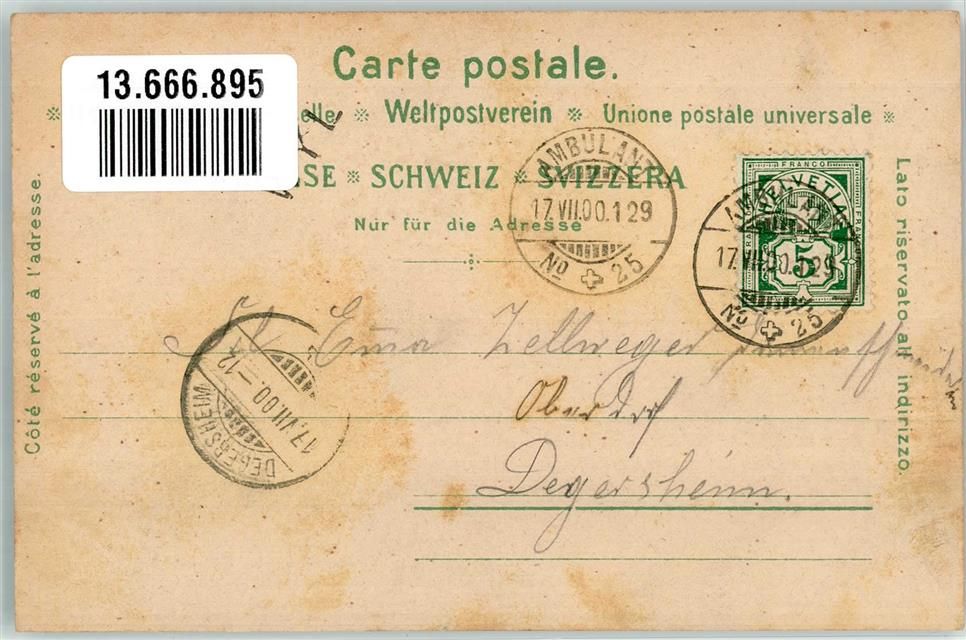 13.666.895
Carte postale.
elle Weltpostverein Unione postale universale
SSE SCHWEIZ SVIZZERA
Nur für die Adresse
Côté réservé à l'adresse.
Lato riservato all' indirizzo.
AMBULANT
17.VII.00.1 29
No 25
FRANCO
HELVETIA
FRANCO
5
AMBULANT
17.VII.00.1 29
No 25
DEGERSHEIM
17.VII.00.-12
Emma Zellweger
Oberdorf
Degersheim.